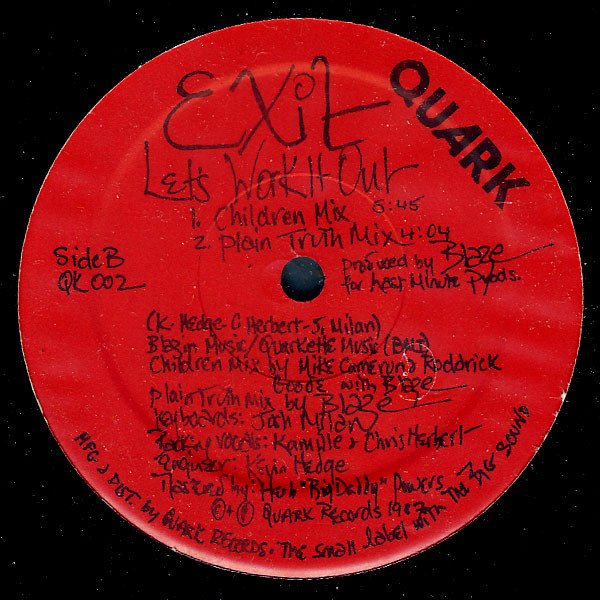 Exit
QUARK
Lets Work It Out
1. Children Mix 6:45
2. Plain Truth Mix 4:04
Side B
QK 002
produced by Blaze
for Last Minute Prods.
(K. Hedge - C Herbert - J. Milan)
Blazin Music/Quarkette Music (BMI)
Children Mix by Mike Cameron & Roddrick
Goode with Blaze
Plain Truth Mix by Blaze
Keyboards: Josh Milan
Backing vocals: Kamyle & Chris Herbert
Kevin Hedge
Mastered by: Herb "Big Daddy" Powers
©+℗ QUARK Records 1987
MFG & DIST. by QUARK RECORDS. The small label with The BIG SOUND